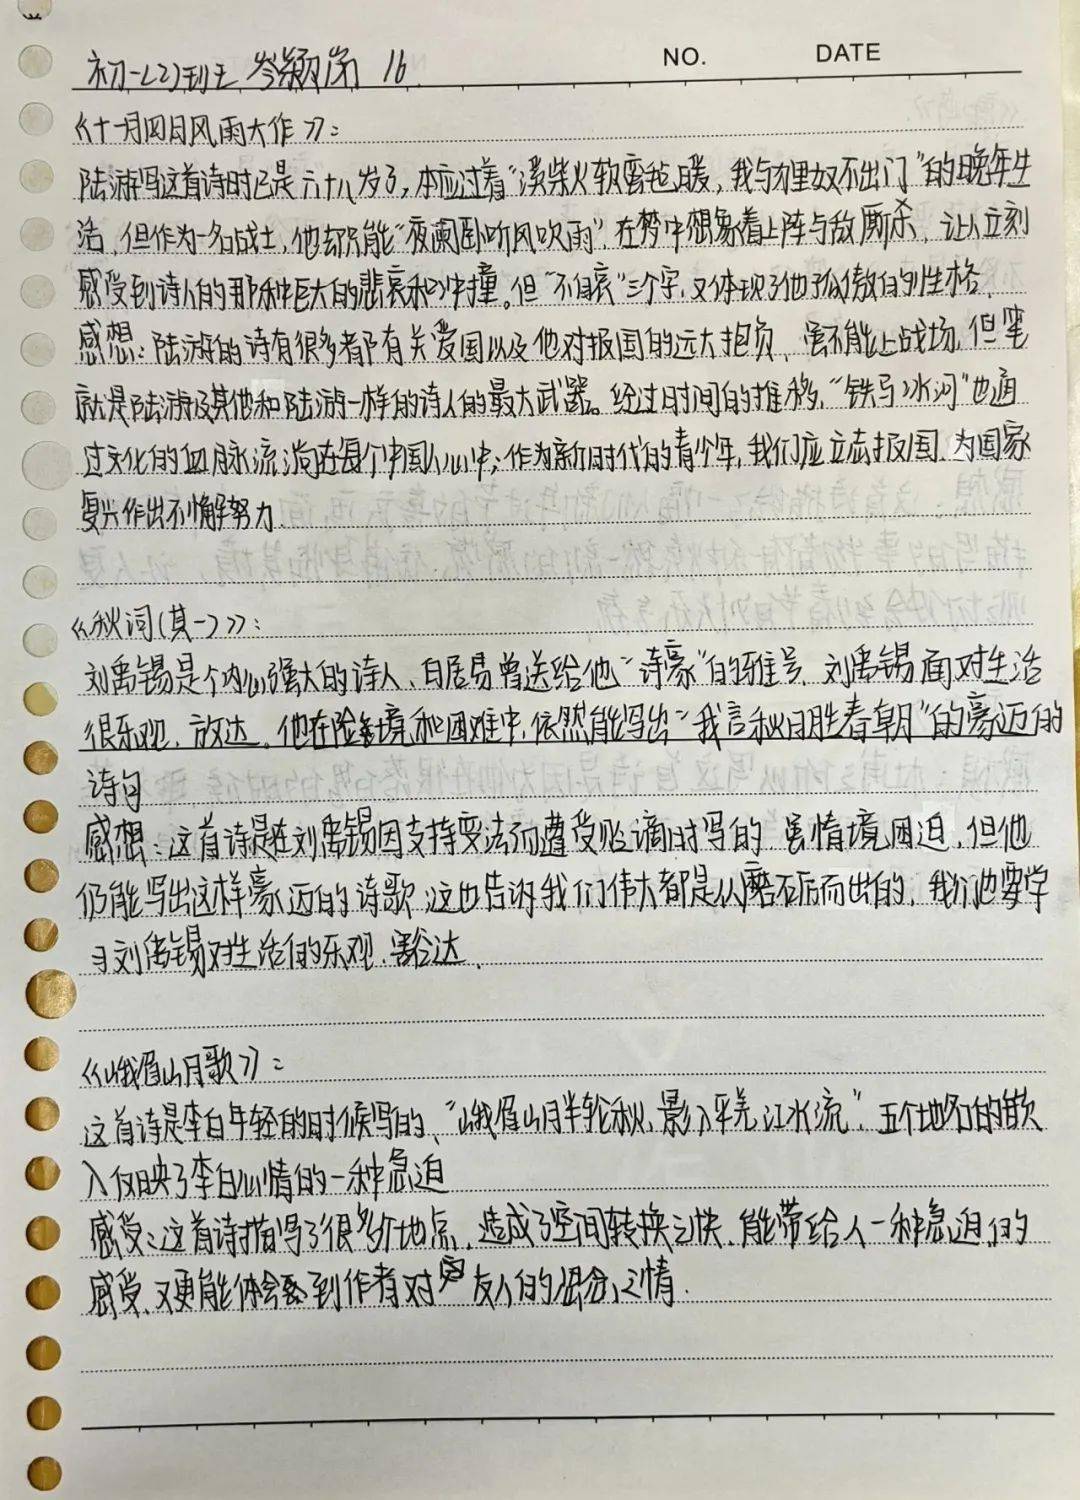 初一(2)班 岑颖岚 16
NO. DATE
《十一月四日风雨大作》:
陆游写这首诗时已是六十八岁了,本应过着“溪柴火软蛮毡暖,我与狸奴不出门”的晚年生
活,但作为一名战士,他却只能“夜阑卧听风吹雨”,在梦中想象着上阵与敌厮杀,让人立刻
感受到诗人的那种巨大的悲哀和冲撞。但“不自哀”三个字,又体现了他孤傲的性格.
感想:陆游的诗有很多都有关爱国以及他对报国的远大抱负、虽不能上战场,但笔
就是陆游及其他和陆游一样的诗人的最大武器。经过时间的推移,“铁马冰河”也通
过文化的血脉流淌在每个中国人心中;作为新时代的青少年,我们应立志报国、为国家
复兴作出不懈努力.
《秋词(其一)》:
刘禹锡是个内心强大的诗人、白居易曾送给他“诗豪”的雅号.刘禹锡面对生活
很乐观、放达。他在险境和困难中,依然能写出“我言秋日胜春朝”的豪迈的
诗句
感想:这首诗是在刘禹锡因支持变法而遭受贬谪时写的.虽情境困迫,但他
仍能写出这样豪迈的诗歌.这也告诉我们伟大都是从磨砺而出的,我们也要学
习刘禹锡对生活的乐观、豁达.
《峨眉山月歌》:
这首诗是李白年轻的时候写的、“峨眉山月半轮秋,影入平羌江水流”.五个地名的嵌
入反映了李白心情的一种急迫
感受:这首诗描写了很多个地点、造成了空间转换之快、能带给人一种急迫的
感受、又更能体会到作者对友人的混合之情.